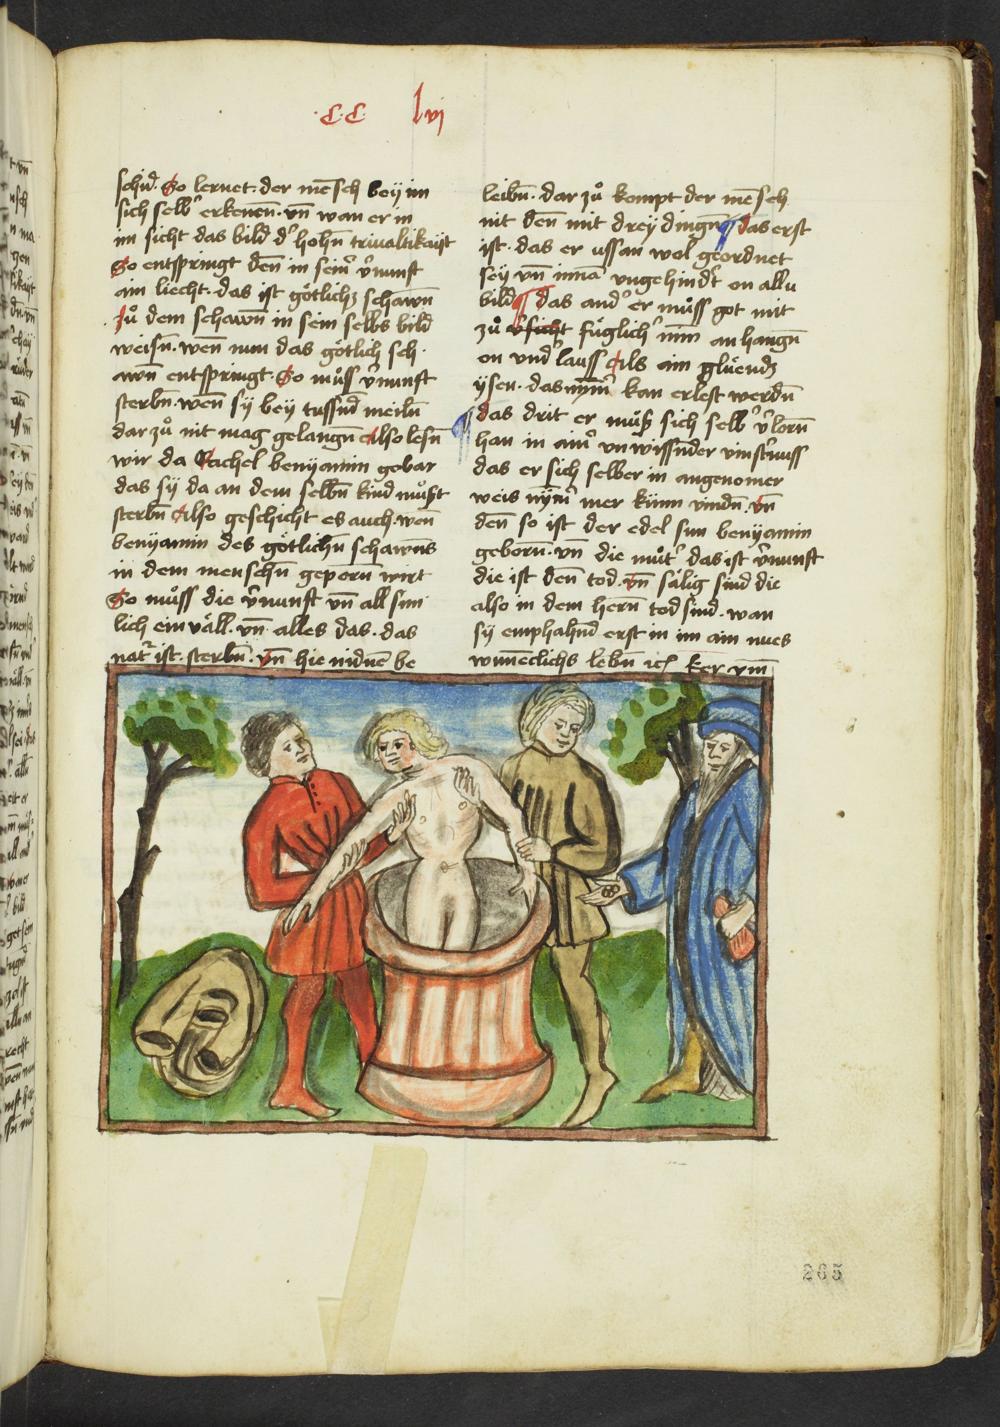 ·C·C· lvj
schid. So lernet der mēsch beÿ im
sich selb' erkenēn. vn̄ wan er in
im sicht das bild d' hohn̄ triualtikaÿt
So entspringt den̄ in sein' v'nunft
ain liecht. das ist götlichs schawn̄
Zů dem schawn̄ in sein selbs bild
weisn̄. wen̄ nun das götlich sch-
awn̄ entspringt. So můss v'nunft
sterbn̄. wen̄ sÿ beÿ tussnd meiln̄
dar zů nit mag gelangn̄ Also lesn̄
wir da Rachel benÿamin gebar
das sÿ da an dem selbn̄ kind můst
sterbn̄ Also geschicht es auch. wen̄
benÿamin des götlichn̄ schawns
in dem menschn̄ geporn̄ wirt
So můss die v'nunft vn̄ all sin
lich einväll. vn̄ alles das. das
natr̄ ist. sterbn̄. vn̄ hie nidnē be
leibn̄. dar zů kompt der mēsch
nit den̄ mit dreÿ dingn̄ das erst
ist. das er ussan wol geordnet
seÿ vn̄ inna' ungehindrt on allu
bild das and' er můss got mit
zů füglich' mīn anhangn̄
on und'lauss Als ain glüends
ÿsen. das nÿm̄ kan erlest werdn̄
das drit er můß sich selb' v'lorn̄
han in aim' unwissnder vinst'nuss
das er sich selber in angenomer
weis nÿm̄ mer künn vindn̄. vn̄
den̄ so ist der edel sun benÿamin
geborn̄. vn̄ die můt' das ist v'nunft
die ist den̄ tod. vn̄ sälig sind die
also in dem hern̄ tod sind. wan
sÿ emphahnd erst in im ain nues
wunēclichs lebn̄ ich ker vm̄
265